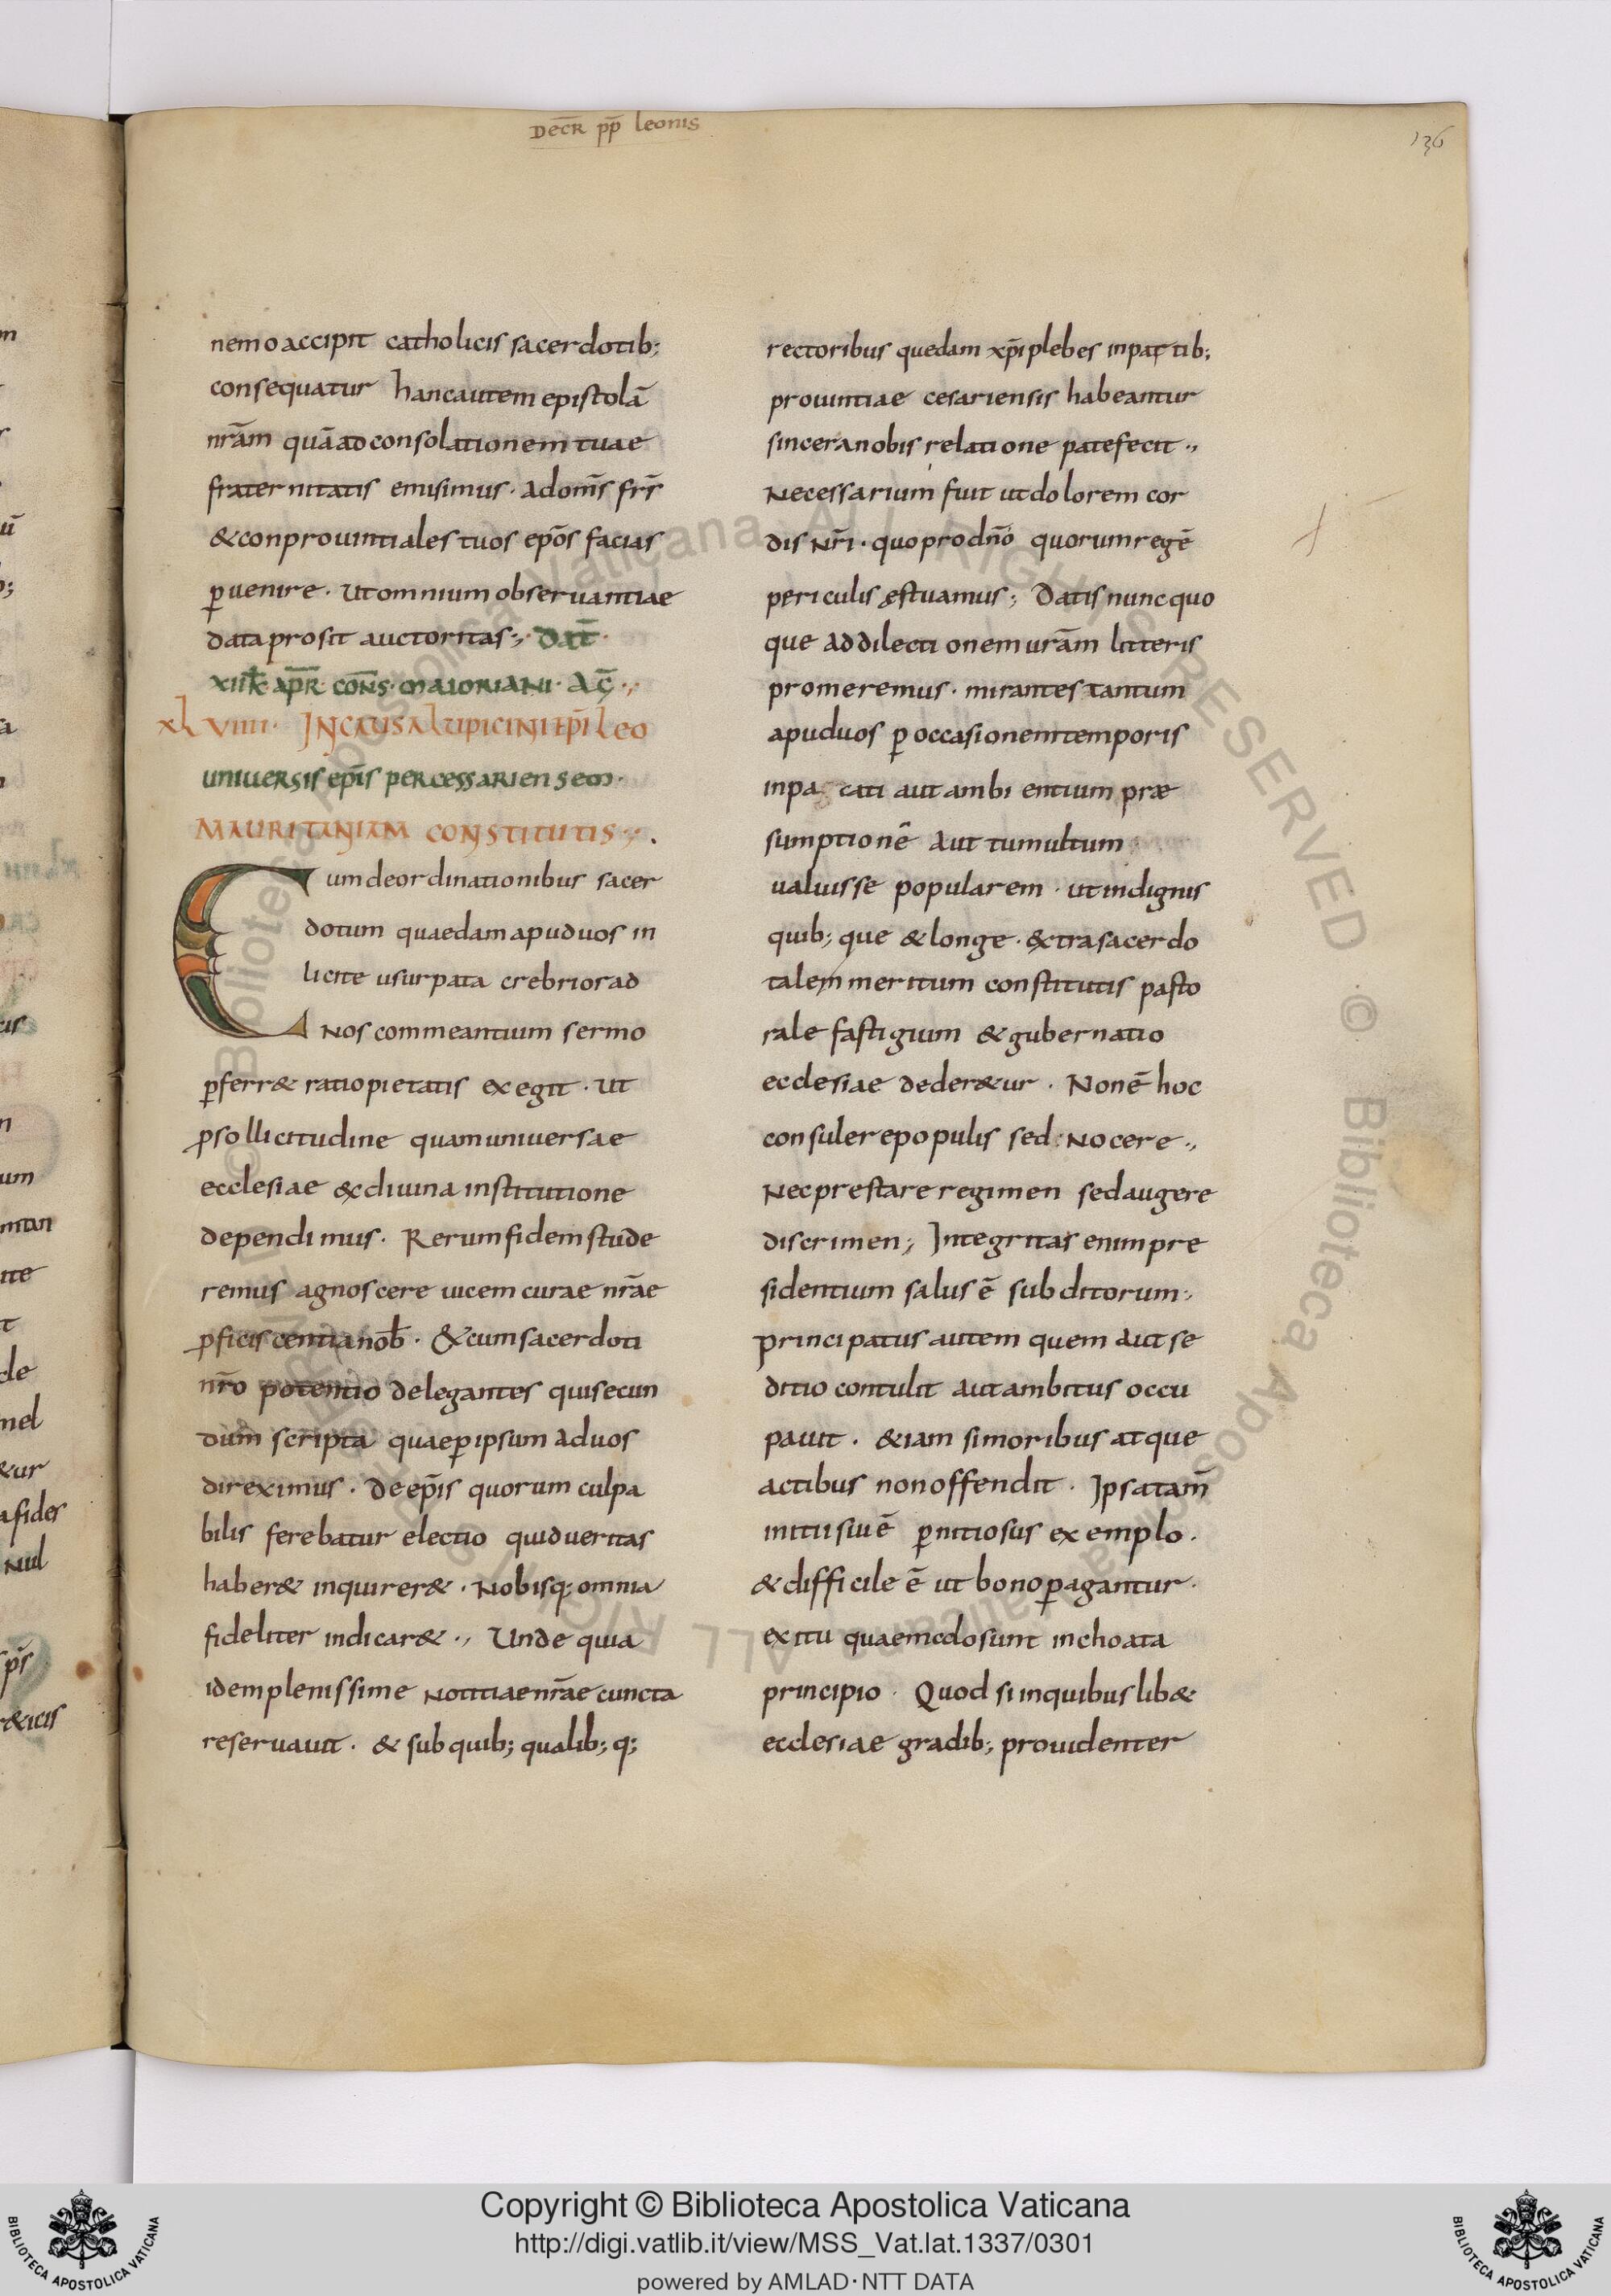 Decr̄ pp̄ leonis
136
nemo accipit catholicis sacerdotib;
consequatur hanc autem epistolā
nr̄am quā ad consolationem tuae
fraternitatis emisimus · ad om̄s fr̄s
& conprouintiales tuos ep̄os facias
ꝑuenire · ut omnium obseruantiae
data prosit auctoritas ·,· Dat̄ ·
XIIII k̄ apr̄ · con̄s · maioriani · Aḡ ·,·
xlviiii · IN CAUSA lupicini ep̄i leo
uniuersis ep̄is per cessariensem ·
MAURITANIAM CONSTITUTIS ·,· .
Cum de ordinationibus sacer
dotum quaedam apud uos in
licite usurpata crebrior ad
Nos commeantium sermo
ꝑferr& ratio pietatis exegit · ut
ꝓ sollicitudine quam uniuersae
ecclesiae ex diuina institutione
dependimus · Rerum fidem stude
remus agnoscere uicem curae nr̄ae
ꝓficiscentia nob̄ · & cum sacerdoti
nr̄o potentio delegantes qui secun
dum scripta quae ꝑ ipsum ad uos
direximus · De ep̄is quorum culpa
bilis ferebatur electio quid ueritas
haber& inquirer& · Nobisq; omnia
fideliter indicar& ·, Unde quia
idem plenissime Notitiae nr̄ae cuncta
reseruauit · & sub quib; qualib; q;
rectoribus quedam xp̄i plebes in partib;
prouintiae cesariensis habeantur
sincera nobis relatione patefecit ·,
Necessarium fuit ut dolorem cor
dis nr̄i · quo pro dn̄o quorum regē
periculis ęstuamus ; Datis nunc quo
que ad dilectionem ur̄am litteris
promeremus · mirantes tantum
apud uos ꝑ occasionem temporis
inpa cati aut ambientium præ
sumptionē aut tumultum
ualuisse popularem · ut indignis
quib; que & longe · extra sacerdo
talem meritum constitutis pasto
rale fastigium & gubernatio
ecclesiae deder&ur · Non ē hoc
consulere populis sed : Nocere ·,
Nec prestare regimen sed augere
discrimen ; Integritas enim pre
sidentium salus ē subditorum ·,
principatus autem quem aut se
ditio contulit aut ambitus occu
pauit · &iam si moribus atque
actibus non offendit · Ipsa tam̄
initii sui ē ꝑnitiosus exemplo ·
& difficile ē ut bono ꝑagantur ·
exitu quae modo sunt inchoata
principio · Quod si in quibuslib&
ecclesiae gradib; prouidenter
Copyright © Biblioteca Apostolica Vaticana
http://digi.vatlib.it/view/MSS_Vat.lat.1337/0301
powered by AMLAD·NTT DATA